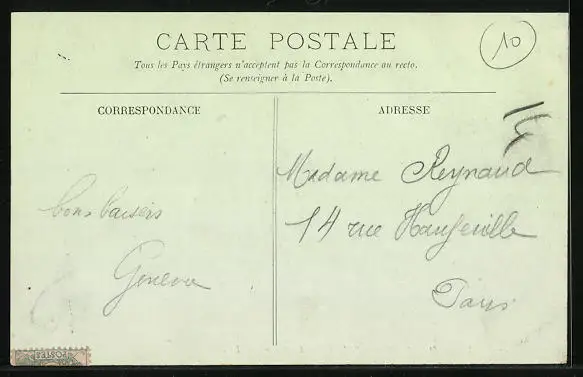 CARTE POSTALE
10
Tous les Pays étrangers n'acceptent pas la Correspondance au recto.
(Se renseigner à la Poste).
CORRESPONDANCE
ADRESSE
Bons baisers
Madame Reynaud
14 rue Hautefeuille
Paris
POSTES